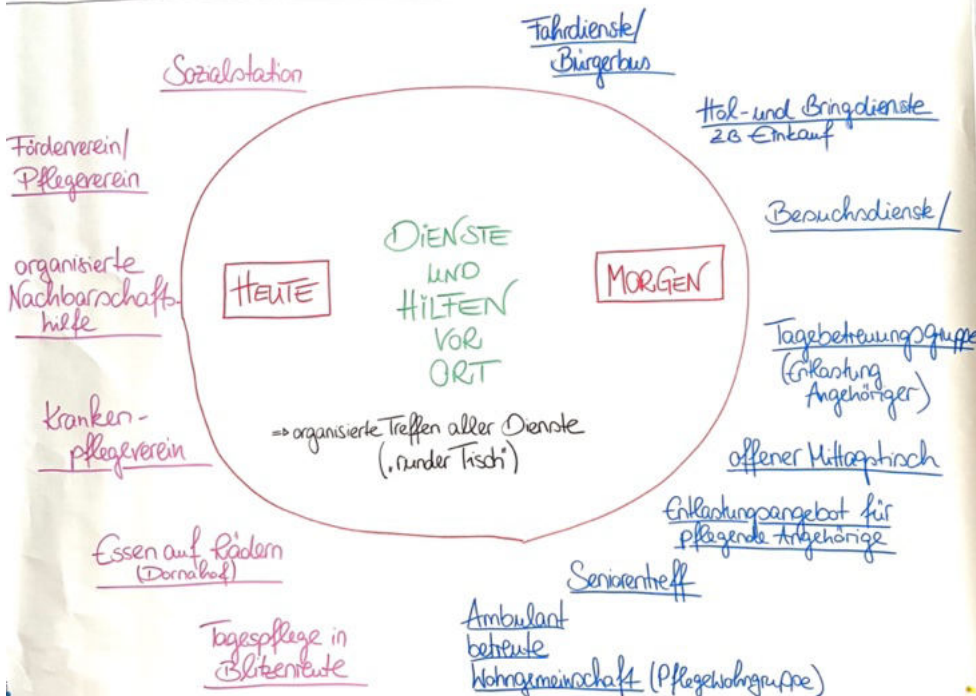 Sozialstation
Förderverein/
Pflegeverein
organisierte
Nachbarschafts-
hilfe
Kranken-
pflegeverein
Essen auf Rädern
(Dornahof)
Tagespflege in
Blitzenreute
HEUTE
DIENSTE
UND
HILFEN
VOR
ORT
MORGEN
⇒ organisierte Treffen aller Dienste
("runder Tisch")
Fahrdienste/
Bürgerbus
Hol- und Bringdienste
zB Einkauf
Besuchsdienste/
Tagebetreuungsgruppe
(Entlastung
Angehöriger)
offener Mittagstisch
Entlastungsangebot für
pflegende Angehörige
Seniorentreff
Ambulant
betreute
Wohngemeinschaft (Pflegewohngruppe)